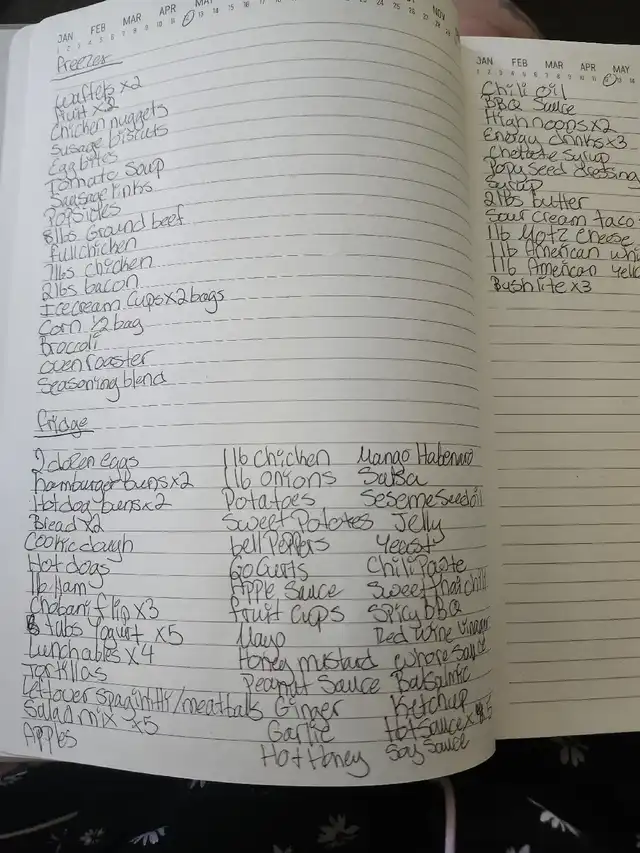 JAN FEB MAR APR MAY NOV
Freezer
Waffles x2
fruit x2
Chicken nuggets
Susage biscuts
Egg bites
Tomato Soup
Sausage links
Popsicles
8lbs Ground beef
full chicken
7lbs chicken
2lbs bacon
Icecream Cups x2 bags
Corn 1/2 bag
Brocoli
oven roaster
Seasoning blend
fridge
2 dozen eggs
hamburger buns x2
Hotdog buns x2
Bread x2
Cookie dough
Hot dogs
1lb Ham
Chobani flip x3
tabs Yogurt x5
Lunchables x4
Tortillas
Leftover spagihtti/meatballs
Salad mix x5
Apples
1lb Chicken
1lb onions
Potatoes
Sweet Potatoes
bell Peppers
GoGurts
Apple Sauce
fruit cups
Mayo
Honey mustard
Peanut Sauce
Ginger
Garlic
Hot Honey
Mango Habenero
Salsa
Seseme Seed oil
Jelly
Yeast
Chili Paste
Sweet thai chili
Spicy bbq
Red Wine vinager
whore Sauce
Balsamic
Ketchup
Hot Sauce x 5
Soy Sauce
JAN FEB MAR APR MAY
Chili oil
BBQ Sauce
High noons x2
Energy drinks x3
Syrup
Popy Seed dressing
Syrup
2lbs butter
Sour cream taco
1lb Motz Cheese
1lb American
1lb American
Bush lite x3